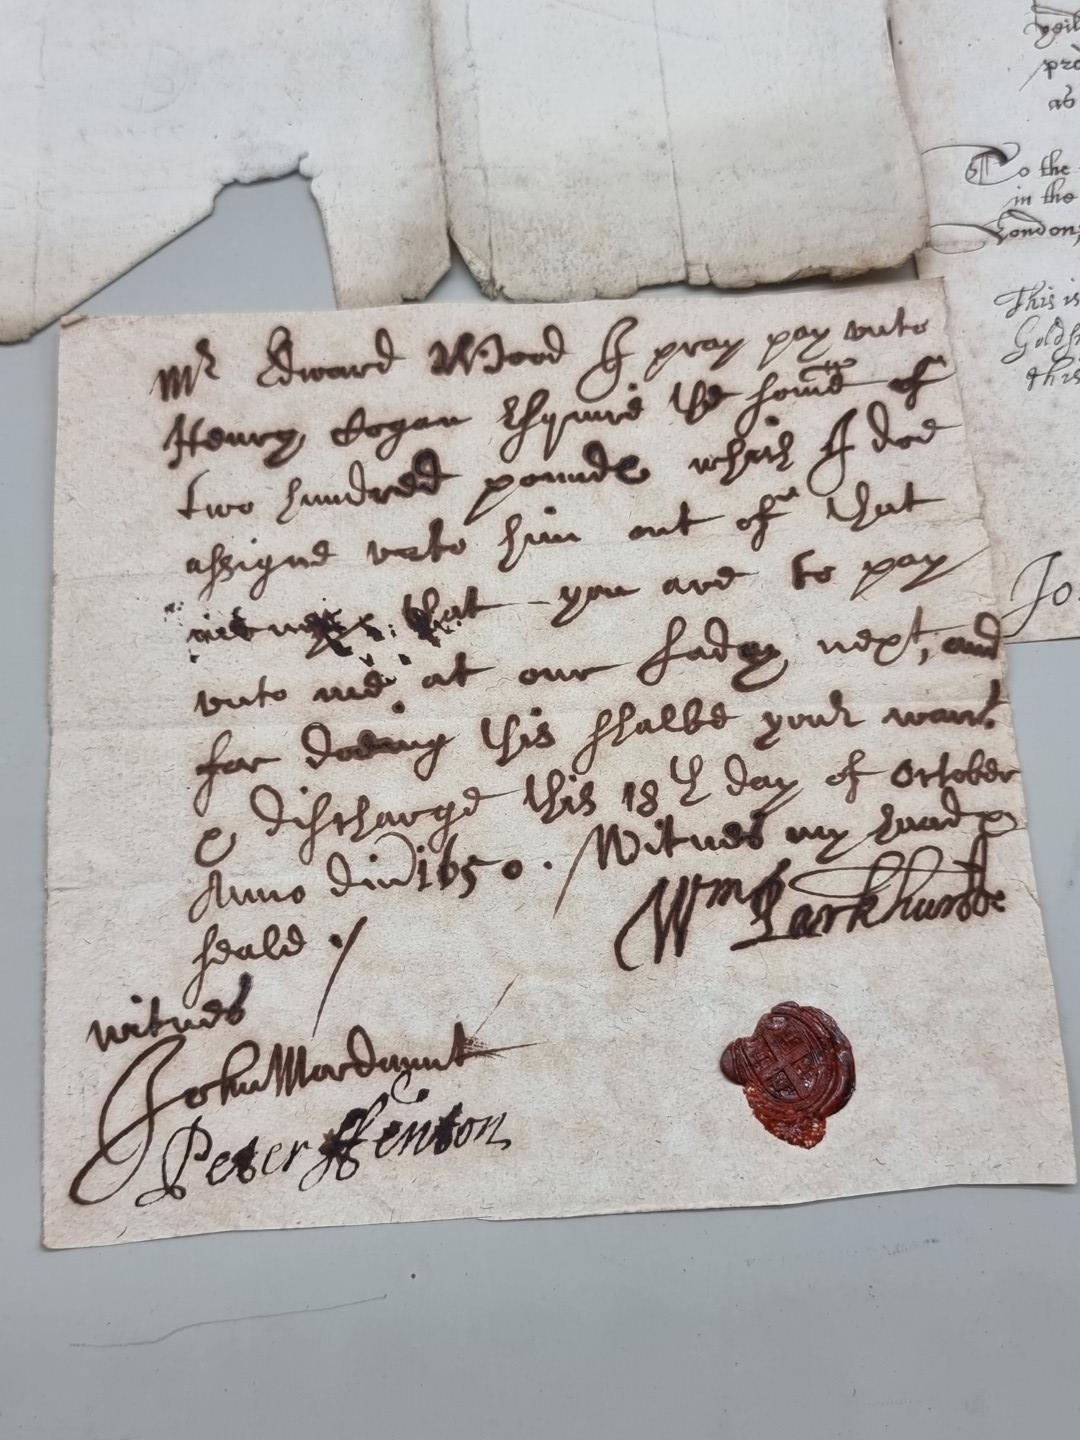 Mr Edward Wood I pray pay unto
Henry Cogan Esquire the some of
two hundred pounds which I doe
assigne unto him out of that
that you are to pay
unto me at our Lady next, and
for doeing this shalbe your warrt
& discharge this 18th day of October
Anno dni 1650. Witnes my hand &
seale /
Wm Parkhurste
witnes
John Mordaunt
Peter ffenton
To the
in the
London
This is
this
as
Jo